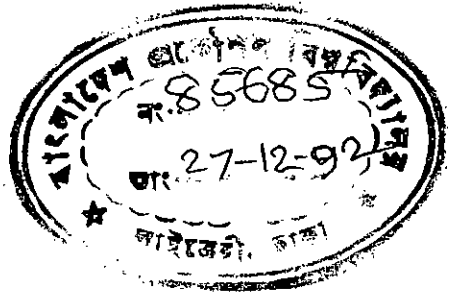 বাংলাদেশ প্রকৌশল বিশ্ববিদ্যালয়
নং. 85685
তাং. 27-12-92
লাইব্রেরী, ঢাকা